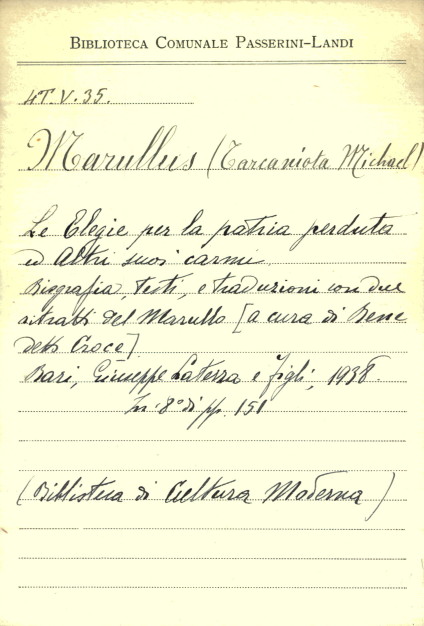 BIBLIOTECA COMUNALE PASSERINI-LANDI
4T.V.35.
Marullus (Tarcaniota Michael)
Le Elegie per la patria perduta
ed Altri suoi carmi.
Biografia, testi, e traduzioni con due
ritratti del Marullo [a cura di Bene
detto Croce]
Bari, Giuseppe Laterza e figli, 1938.
In 8° di pp. 151
(Biblioteca di Cultura Moderna)